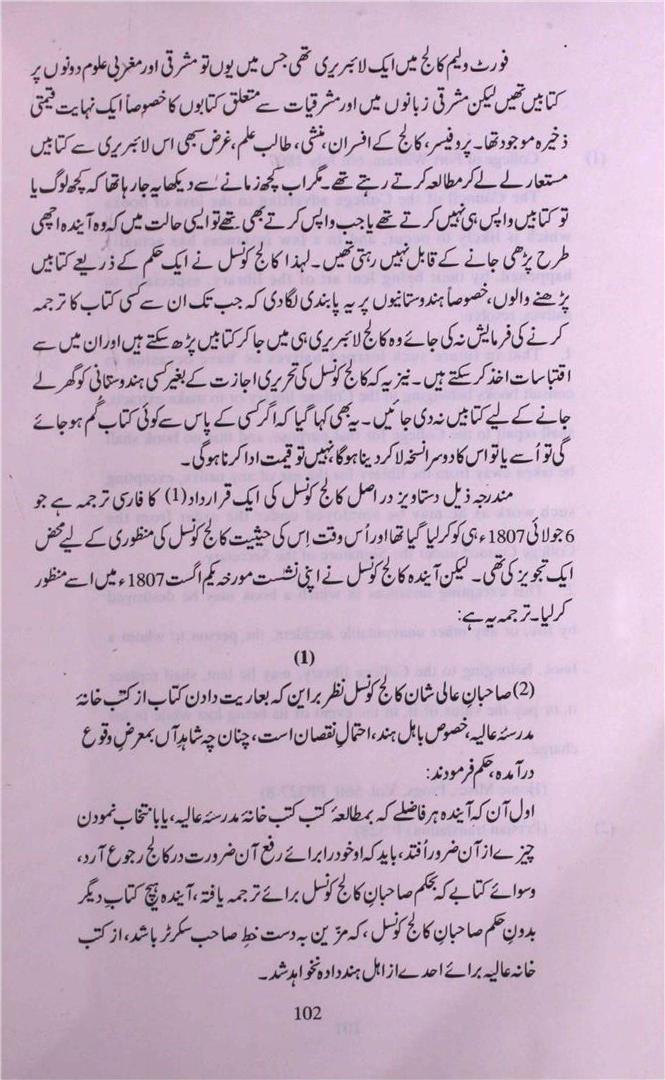 فورٹ ولیم کالج میں ایک لائبریری تھی جس میں یوں تو مشرقی اور مغربی علوم دونوں پر
کتابیں تھیں لیکن مشرقی زبانوں میں اور مشرقیات سے متعلق کتابوں کا خصوصاً ایک نہایت قیمتی
ذخیرہ موجود تھا۔ پروفیسر، کالج کے افسران، منشی، طالب علم، غرض سبھی اس لائبریری سے کتابیں
مستعار لے لے کر مطالعہ کرتے رہتے تھے۔ مگر اب کچھ زمانے سے دیکھا یہ جا رہا تھا کہ کچھ لوگ یا
تو کتابیں واپس ہی نہیں کرتے تھے یا جب واپس کرتے بھی تھے تو ایسی حالت میں کہ وہ آیندہ اچھی
طرح پڑھی جانے کے قابل نہیں رہتی تھیں۔ لہذا کالج کونسل نے ایک حکم کے ذریعے کتابیں
پڑھنے والوں، خصوصاً ہندوستانیوں پر یہ پابندی لگا دی کہ جب تک ان سے کسی کتاب کا ترجمہ
کرنے کی فرمایش نہ کی جائے وہ کالج لائبریری ہی میں جا کر کتابیں پڑھ سکتے ہیں اور ان میں سے
اقتباسات اخذ کر سکتے ہیں۔ نیز یہ کہ کالج کونسل کی تحریری اجازت کے بغیر کسی ہندوستانی کو گھر لے
جانے کے لیے کتابیں نہ دی جائیں۔ یہ بھی کہا گیا کہ اگر کسی کے پاس سے کوئی کتاب گم ہو جائے
گی تو اُسے یا تو اس کا دوسرا نسخہ لا کر دینا ہوگا یہیں تو قیمت ادا کرنا ہوگی۔
مندرجہ ذیل دستاویز دراصل کالج کونسل کی ایک قرارداد (1) کا فارسی ترجمہ ہے جو
6 جولائی 1807ء ہی کو کر لیا گیا تھا اور اُس وقت اِس کی حیثیت کالج کونسل کی منظوری کے لیے محض
ایک تجویز کی تھی۔ لیکن آیندہ کالج کونسل نے اپنی نشست مورخہ یکم اگست 1807ء میں اسے منظور
کر لیا۔ ترجمہ یہ ہے:
(1)
(2) صاحبانِ عالی شان کالج کونسل نظر براین کہ بعاریت دادن کتاب از کتب خانۂ
مدرسۂ عالیہ، خصوص باہل ہند، احتمالِ نقصان است، چنان چہ شاہدِ آں بمعرضِ وقوع
درآمدہ، حکم فرمودند:
اول آن کہ آیندہ ہر فاضلے کہ بمطالعۂ کتب کتب خانۂ مدرسۂ عالیہ، یا با نتخاب نمودن
چیزے از آن ضرور اُفتد، باید کہ او خود را برائے رفع آن ضرورت در کالج رجوع آرد،
و سوائے کتابے کہ بحکم صاحبانِ کالج کونسل برائے ترجمہ یافتہ، آیندہ ہیچ کتابِ دیگر
بدونِ حکم صاحبانِ کالج کونسل، کہ مزّین بہ دست خطِ صاحب سکرٹر باشد، از کتب
خانہ عالیہ برائے احدے از اہل ہند دادہ نخواہد شد۔
102